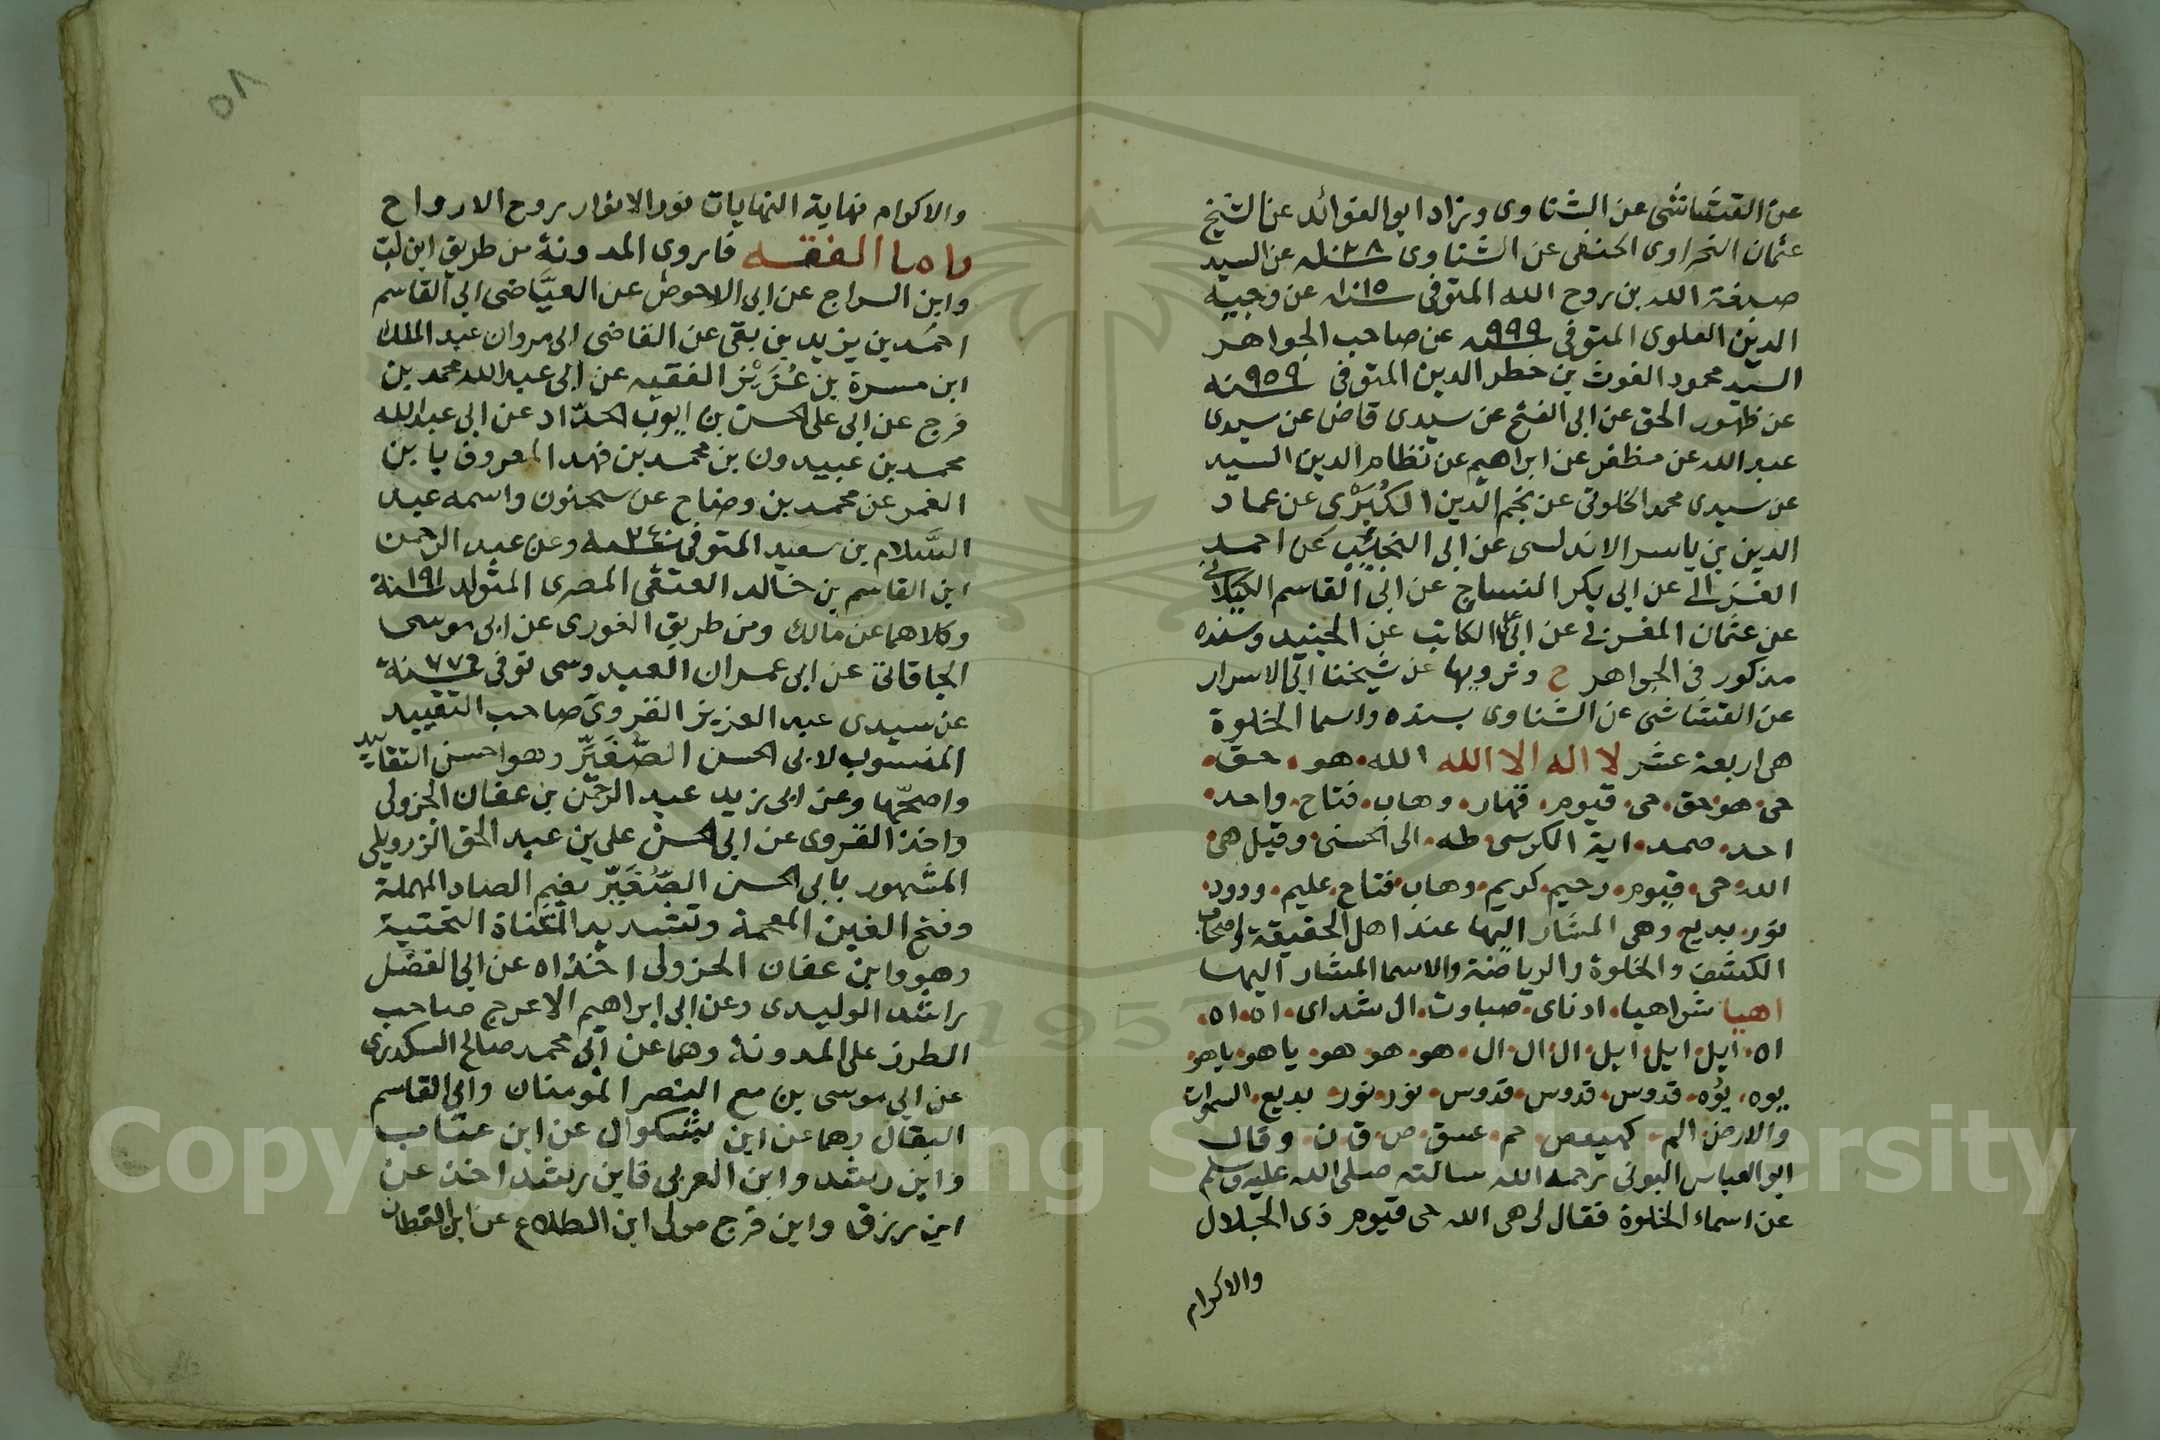 عن القشاشى عن الشناوى وزاد ابو الفوائد عن الشيخ
عثمان النحراوى الحنفى عن الشناوى ١٠٢٨سنه عن السيد
صبغة الله بن روح الله المتوفى ١٠١٥سنه عن وجيه
الدين العلوى المتوفى ٩٩٩سنه عن صاحب الجواهر
السيد محمود الغوث بن خطر الدين المتوفى ٩٥٩سنه
عن ظهور الحق عن ابى الفتح عن سيدى قاض عن سيدى
عبد الله عن مظفر عن ابراهيم عن نظام الدين السيد
عن سيدى محمد الخلوتى عن نجم الدين الكُبَرْى عن عماد
الدين بن ياسر الاندلسى عن ابى النجيب عن احمد
الغزالى عن ابى بكر النساج عن ابى القاسم الكيلانى
عن عثمان المغربى عن ابى على الكاتب عن الجنيد وسنده
مذكور فى الجواهر ح ونرويها عن شيخنا ابى الاسرار
عن القشاشى عن الشناوى بسنده واسما الخلوة
هى اربعة عشر لا اله الا الله الله هو حق
حى هو حق حى قيوم قهار وهاب فتاح واحد
احد صمد اية الكرسى طه الى الحسنى وقيل هى
الله حى قيوم رحيم كريم وهاب فتاح عليم ودود
نور بديع وهى المشار اليها عند اهل الحقيقة واصحاب
الكشف والخلوة والرياضة والاسما المشار اليها
اهيا شراهيا ادناى صباوت ال شداى اه اه
اه ايل ايل ايل ال ال ال هو هو هو ياهو ياهو
يوه يوه قدوس قدوس قدوس نور نور بديع السموات
والارض الم كهيعص حم عسق ص ق ن وقال
ابو العباس البونى رحمه الله سالته صلى الله عليه وسلم
عن اسماء الخلوة فقال لى هى الله حى قيوم ذى الجلال
والاكرام
٥٨
والاكرام نهاية النهايات نور الانوار روح الارواح
واما الفقه فاروى المدونة من طريق ابن لب
وابن السراج عن ابى الاحوص عن العيَّاضى ابى القاسم
احمد بن يزيد بن بقى عن القاضى ابى مروان عبد الملك
ابن مسرة بن عُزَيْز الفقيه عن ابى عبد الله محمد بن
فرج عن ابى على الحسن بن ايوب الحدّاد عن ابى عبد الله
محمد بن عبيدون بن محمد بن فهد المعروف بابن
الغمر عن محمد بن وضاح عن سحنون واسمه عبد
السَّلام بن سعيد المتوفى ٢٤٠سنه وعن عبد الرحمن
ابن القاسم بن خالد العتقى المصرى المتولد ١٩١سنة
وكلاهما عن مالك ومن طريق الغورى عن ابى موسى
الجاقانى عن ابى عمران العبدوسى توفى ٧٧٦سنة
عن سيدى عبد العزيز القروى صاحب التقييد
المنسوب لابى الحسن الصُّغَيَّر وهو احسن التقاييد
واصحّها وعن ابى زيد عبد الرحمن بن عفان الجزولى
واخذ القروى عن ابى الحسن على بن عبد الحق الزرويلى
المشهور بابى الحسن الصُّغَيَّر بضم الصاد المهملة
وفتح الغين المعجمة وتشديد المثناة التحتية
وهو وابن عفان الجزولى اخذاه عن ابى الفضل
راشد الوليدى وعن ابى ابراهيم الاعرج صاحب
الطرز على المدونة وهما عن ابى محمد صالح السكدزى
عن ابى موسى بن مع النصر المومنان وابى القاسم
البقال وهما عن ابن بشكوال عن ابن عتاب
وابن رشد وابن العربى فابن رشد اخذ عن
ابن رزق وابن فرج مولى ابن الطلاع عن ابن القطان
Copyright © King Saud University
1957